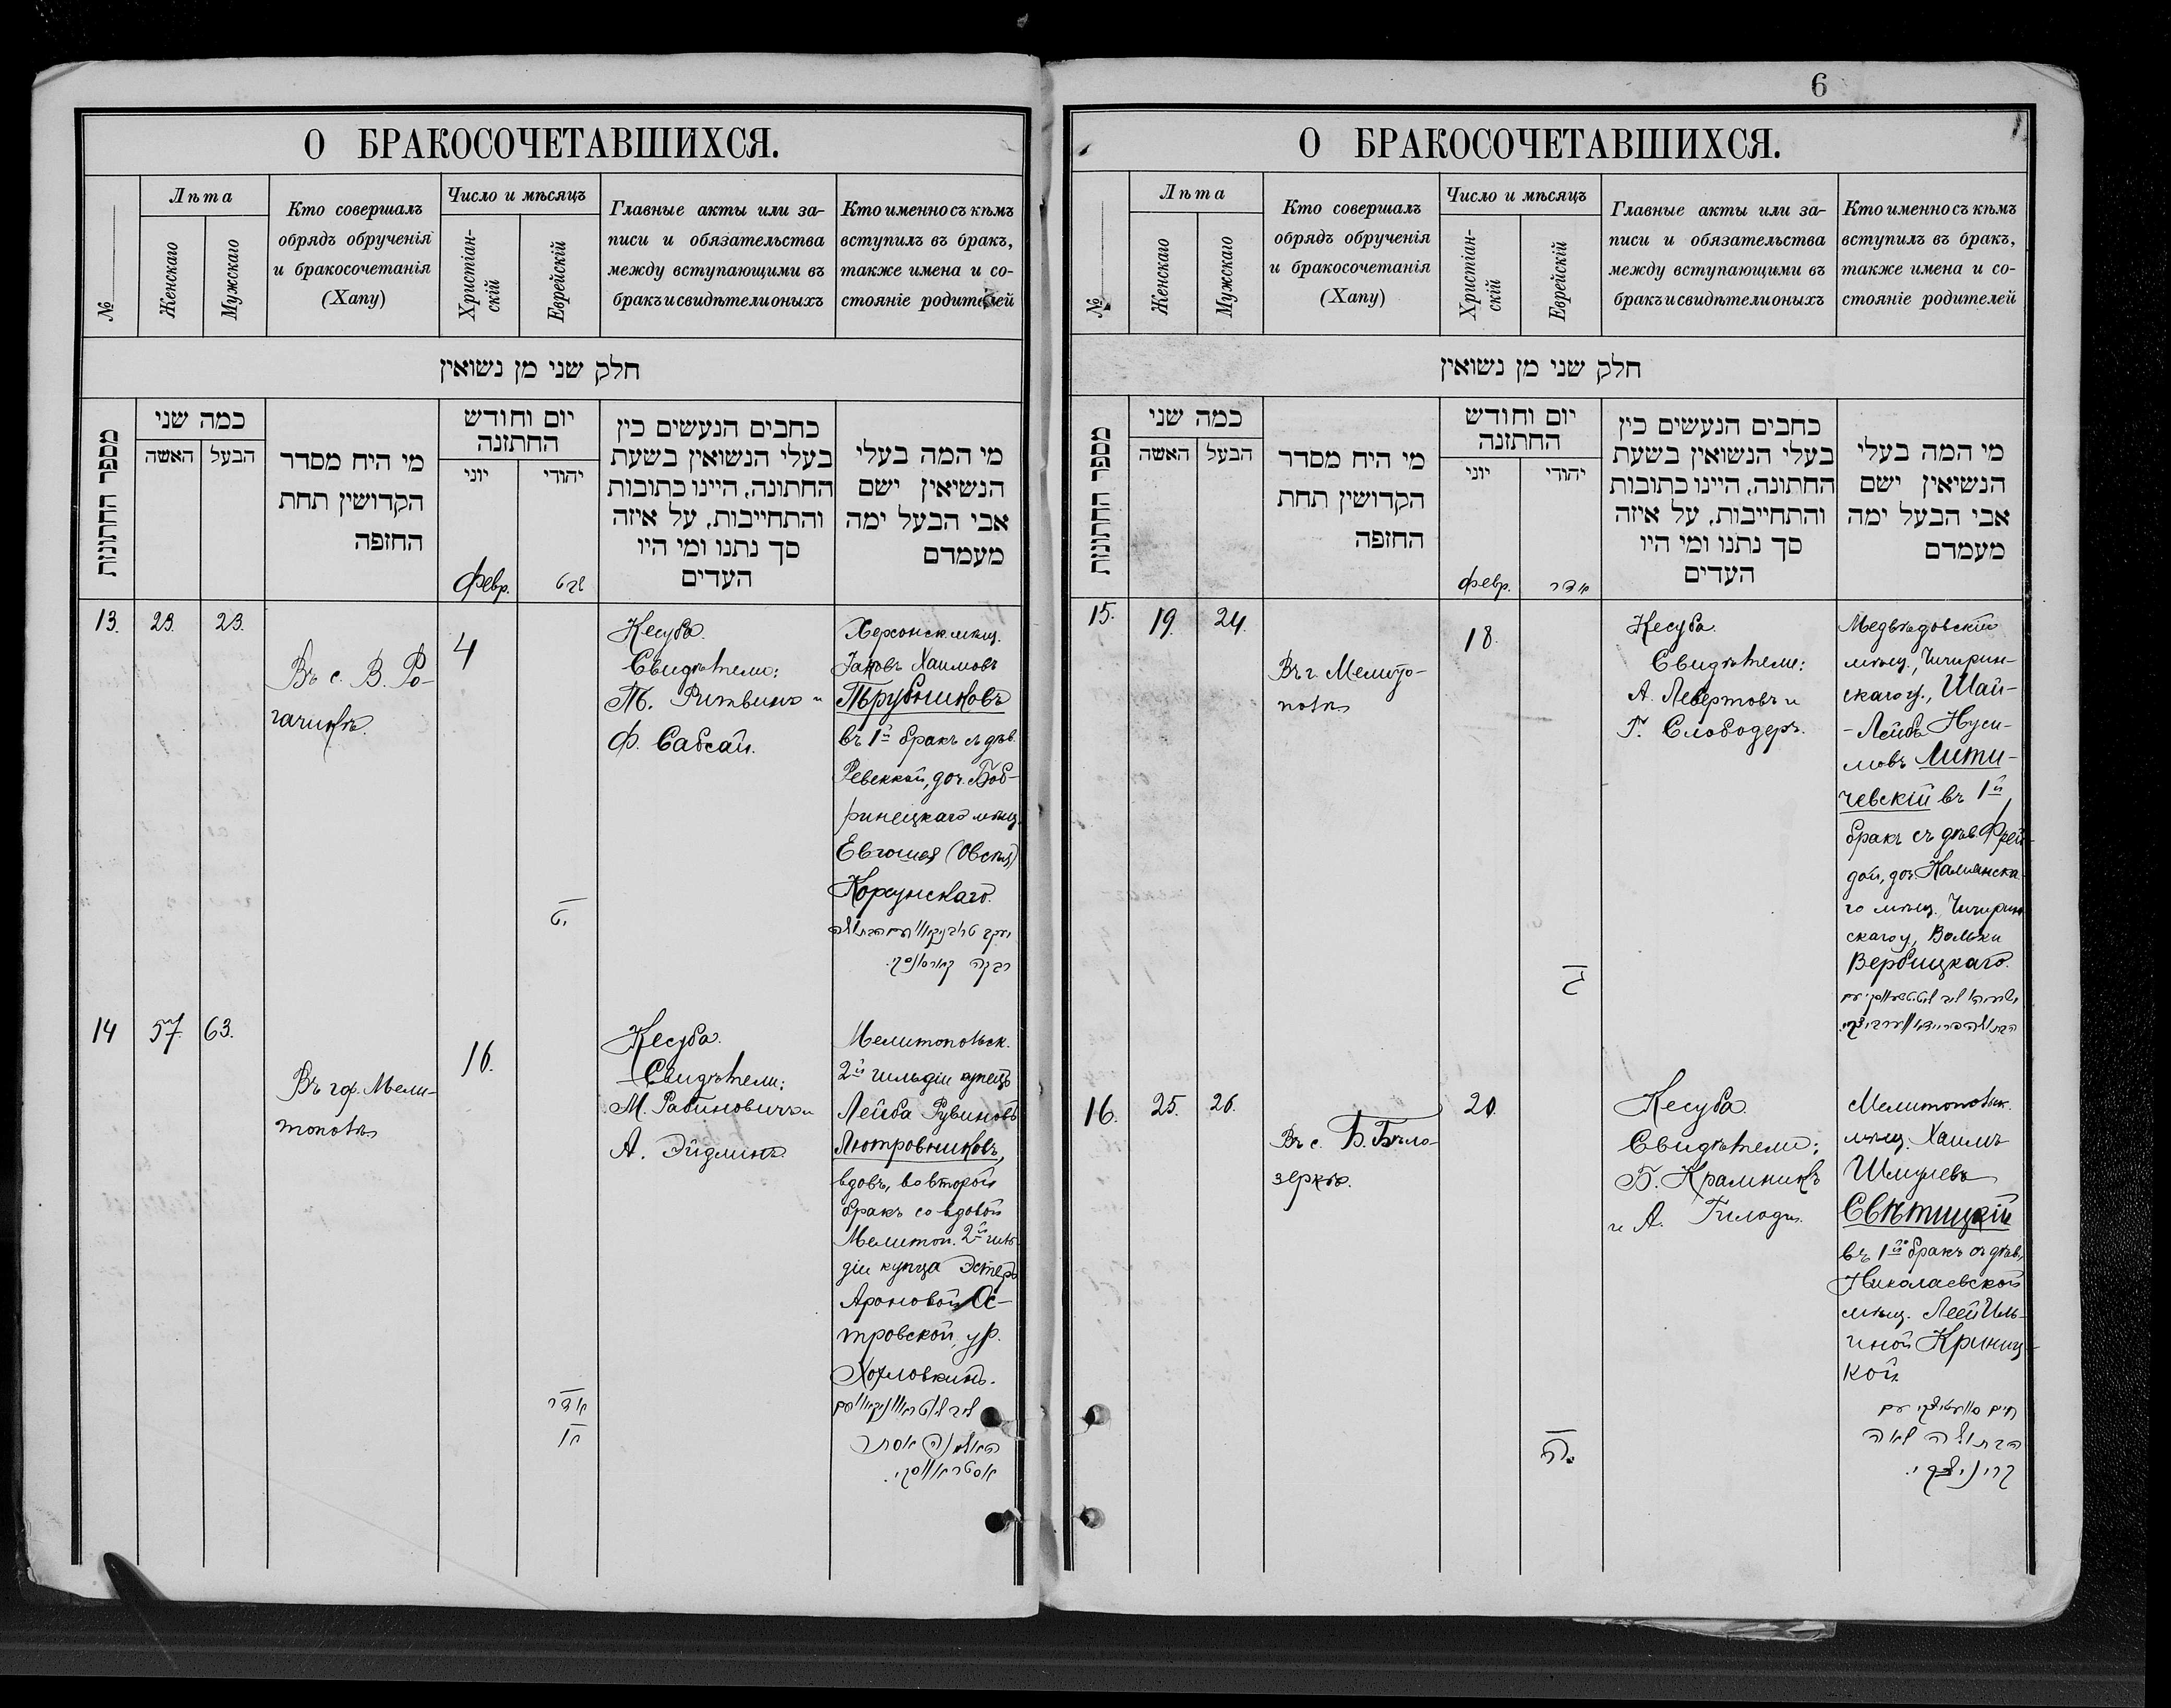 О БРАКОСОЧЕТАВШИХСЯ.
№
Лѣта
Женскаго
Мужскаго
Кто совершалъ
обрядъ обрученія
и бракосочетанія
(Хапу)
Число и мѣсяцъ
Христіан-
скій
Еврейскій
Главные акты или за-
писи и обязательства
между вступающими въ
бракъ и свидѣтели оныхъ
Кто именно съ кѣмъ
вступилъ въ бракъ,
также имена и со-
стояніе родителей
חלק שני מן נשואין
מספר החתונות
כמה שני
האשה
הבעל
מי היח מסדר
הקדושין תחת
החזפה
יום וחודש
החתזנה
יוני
יהודי
כחבים הנעשים כין
בעלי הנשואין בשעת
החתונה, היינו כתובות
והתחייבות, על איזה
סך נתנו ומי היו
העדים
מי המה בעלי
הנשיאין ישם
אבי הבעל ימה
מעמדם
февр.
שבט
13.
23.
23.
Въ с. В. Ро-
гачикѣ.
4
יט
Кесуба.
Свидѣтели:
Т. Литвинъ и
Ф. Сабсай.
Херсонск. мѣщ.
Іаковъ Хаимовъ
Трубниковъ
въ 1й бракъ съ дѣв.
Ревеккой, доч. Боб-
ринецкаго мѣщ.
Евгошея (Овсея)
Корсунскаго.
יעקב טרובניקאוו עם הבתולה
רבקה קארסונסקי.
14
57.
63.
Въ гор. Мели-
тополѣ.
16.
אדר
Кесуба.
Свидѣтели:
М. Рабиновичъ и
А. Эйдлинъ.
Мелитопольск.
2й гильдіи купецъ
Лейба Рувиновъ
Лютровниковъ,
вдовъ, во второй
бракъ со вдовой
Мелитоп. 2й гиль-
діи купца Эстеръ
Ароновой Ос-
тровской, ур.
האלמנה אסתר
אסטראווסקי.
6
О БРАКОСОЧЕТАВШИХСЯ.
№
Лѣта
Женскаго
Мужскаго
Кто совершалъ
обрядъ обрученія
и бракосочетанія
(Хапу)
Число и мѣсяцъ
Христіан-
скій
Еврейскій
Главные акты или за-
писи и обязательства
между вступающими въ
бракъ и свидѣтели оныхъ
Кто именно съ кѣмъ
вступилъ въ бракъ,
также имена и со-
стояніе родителей
חלק שני מן נשואין
מספר החתונות
כמה שני
האשה
הבעל
מי היח מסדר
הקדושין תחת
החזפה
יום וחודש
החתזנה
יוני
יהודי
כחבים הנעשים כין
בעלי הנשואין בשעת
החתונה, היינו כתובות
והתחייבות, על איזה
סך נתנו ומי היו
העדים
מי המה בעלי
הנשיאין ישם
אבי הבעל ימה
מעמדם
февр.
אדר
15.
19.
24.
Въ г. Мелито-
полѣ
18.
ג
Кесуба.
Свидѣтели:
А. Левертовъ и
Г. Слободеръ.
Медвѣдовскій
мѣщ., Чигирин-
скаго у., Шаи-
-Лейбъ Нуси-
мовъ Лити-
чевскій въ 1й
бракъ съ дѣв. Фрей-
дой, доч. Каменска-
го мѣщ., Чигирин-
скаго у., Вольки
Вербицкаго.
16.
25.
26.
Въ с. Б. Бѣло-
зеркѣ.
20.
ה
Кесуба.
Свидѣтели:
Б. Крамникъ
и А. Гилодъ.
Мелитопольск.
мѣщ. Хаимъ
Шмулевъ
Свѣтицкій
въ 1й бракъ съ дѣв.
Николаевской
мѣщ. Леей Иль-
иной Криниц-
кой.
חיים סוועטיצקי עם
הבתולה לאה
קריניצקי.